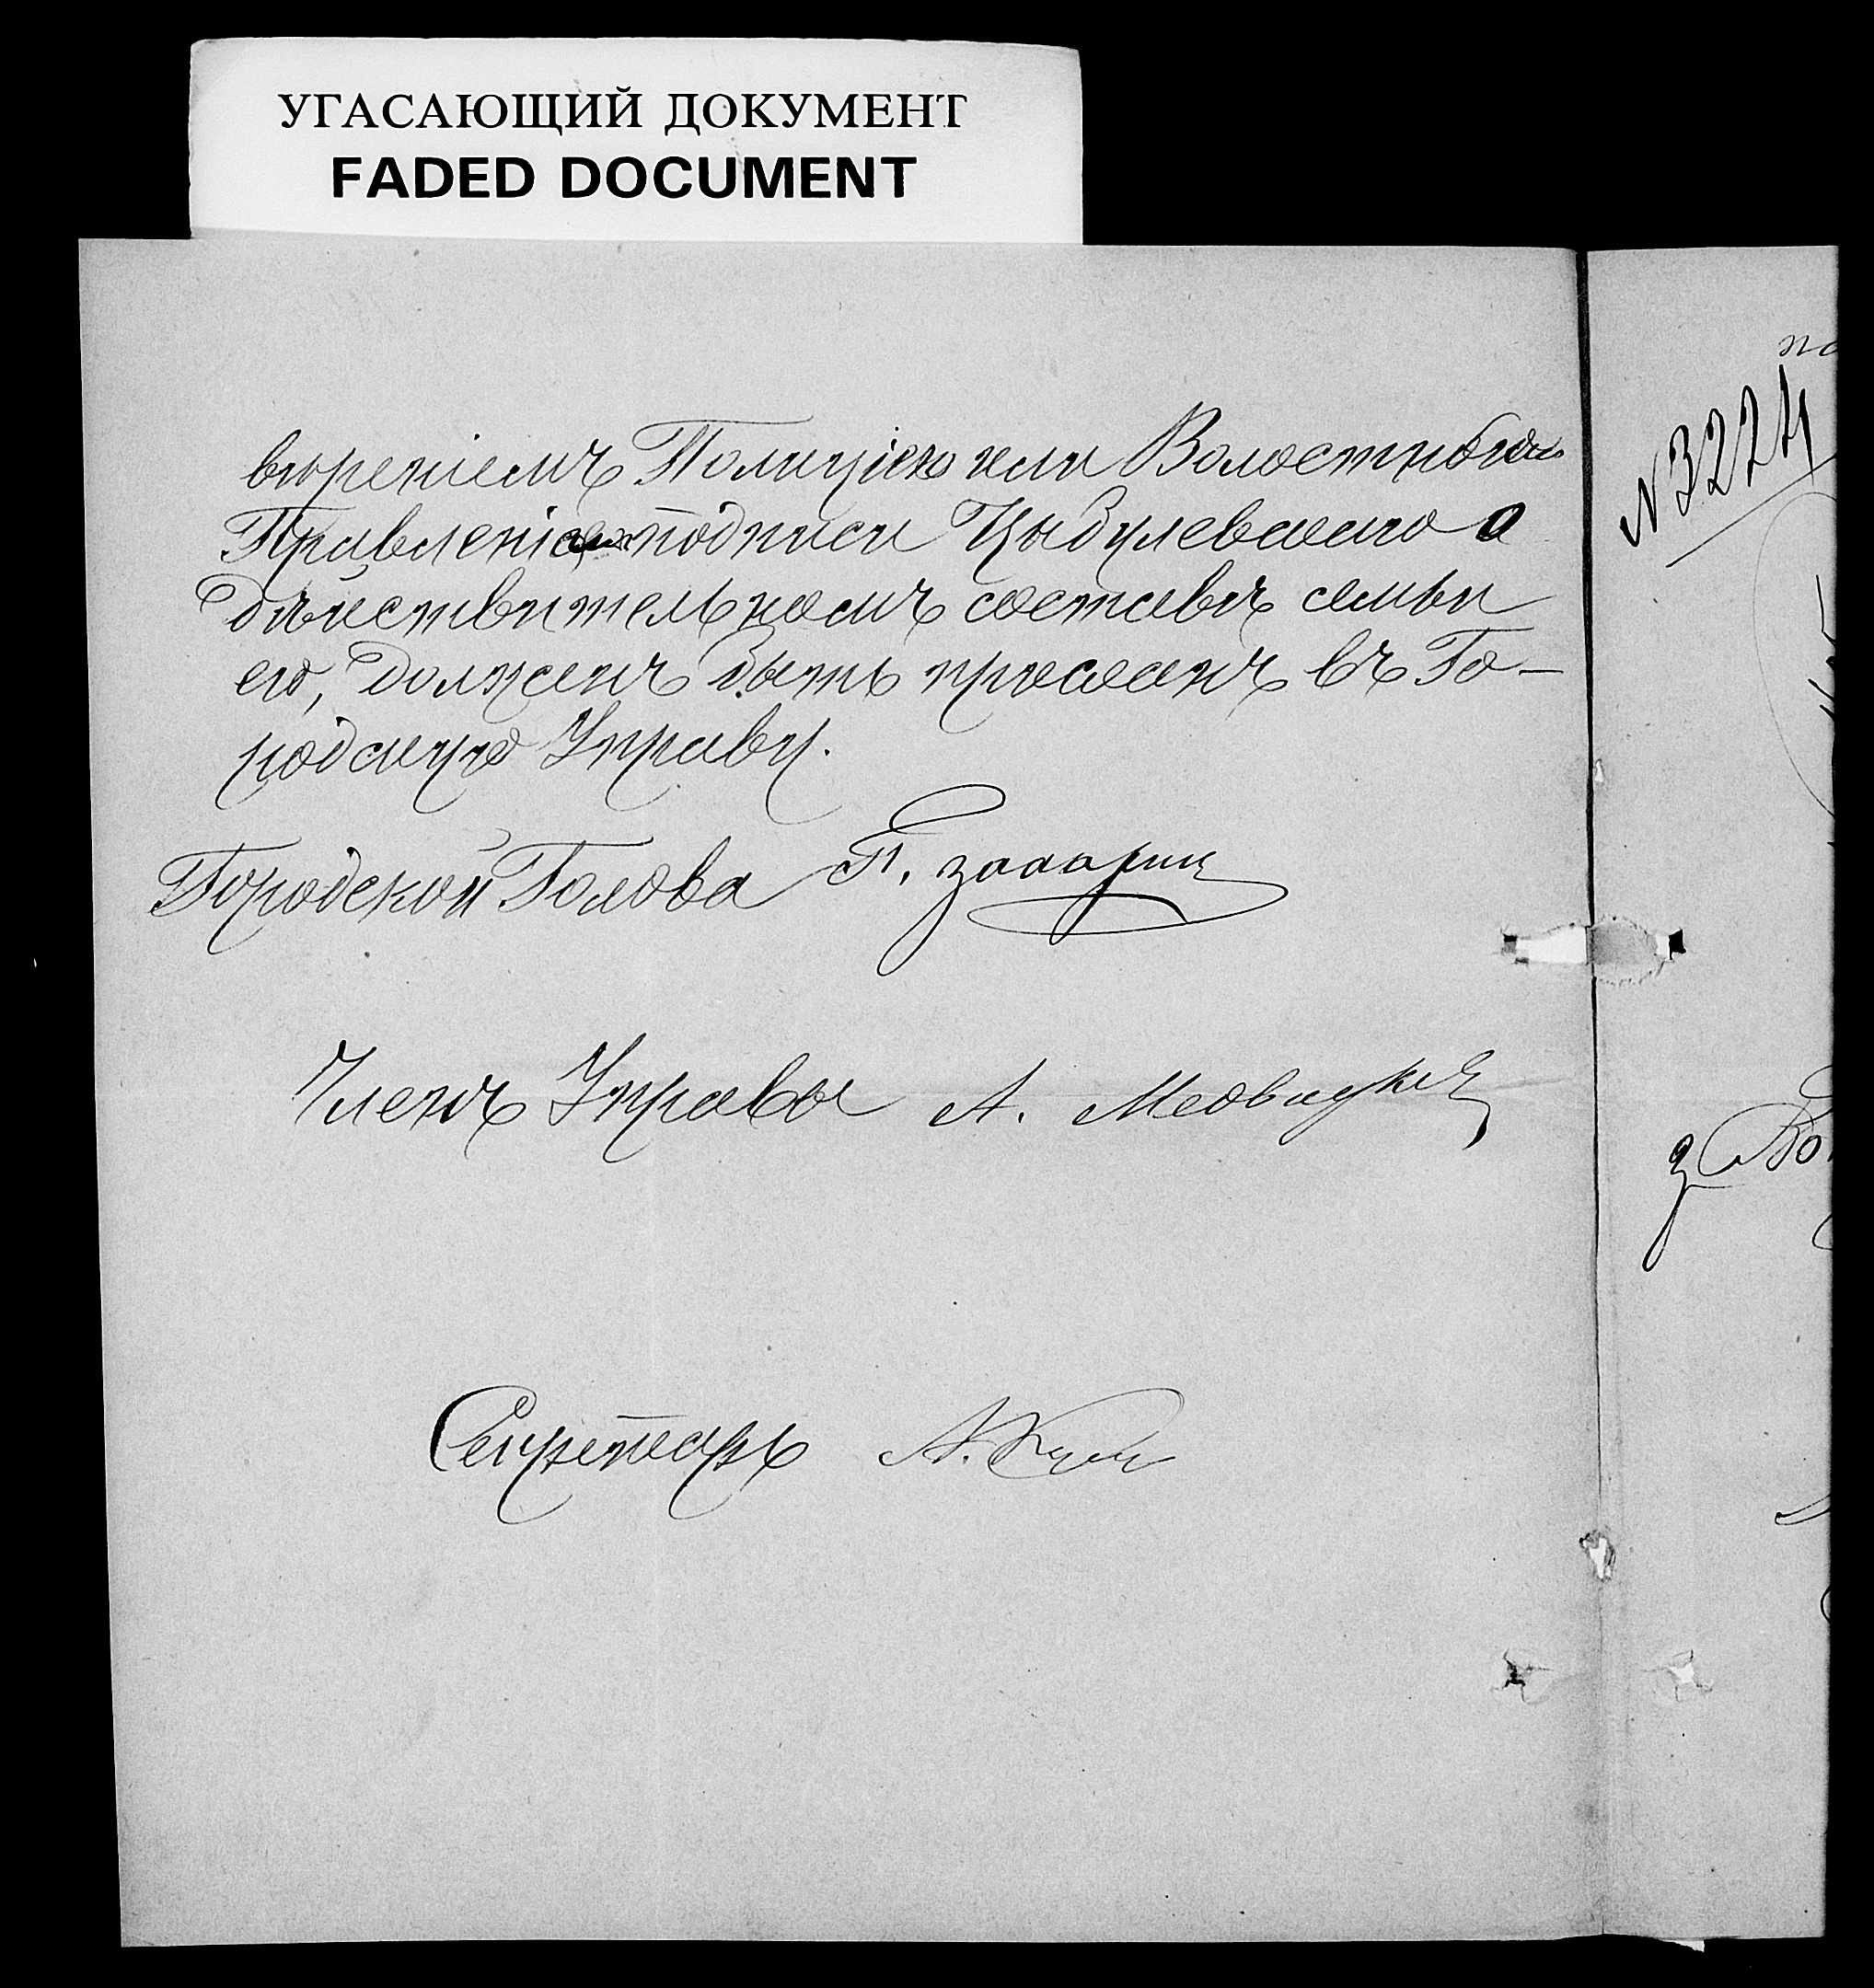 УГАСАЮЩИЙ ДОКУМЕНТ
FADED DOCUMENT
вѣреніемъ Полиціею или Волостнымъ
Правленіемъ подписи Цыбулевскаго о
дѣйствительномъ составѣ семьи
его, долженъ быть присланъ въ Го-
родскую Управу.
Городской Голова П.
Членъ Управы А.
Секретарь А.
№ 3224